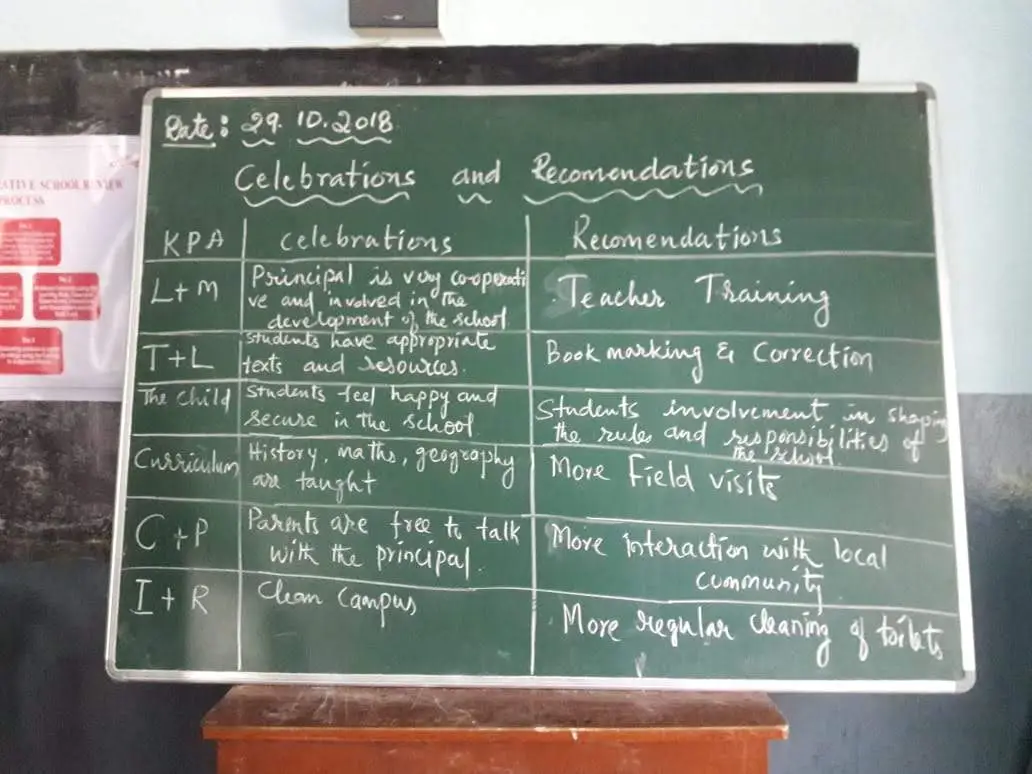 Date: 29.10.2018
Celebrations and Recomendations
KPA celebrations Recomendations
L+M Principal is very co-operati Teacher Training
ve and involved in the
development of the school
T+L students have appropriate Book marking & Correction
texts and resources.
The child Students feel happy and Students involvement in shaping
secure in the school the rules and responsibilities of
the school.
Curriculum History, maths, geography More Field visits
are taught
C+P Parents are free to talk More interaction with local
with the principal. community
I+R Clean Campus More regular cleaning of toilets
ATIVE SCHOOL REVIEW
PROCESS